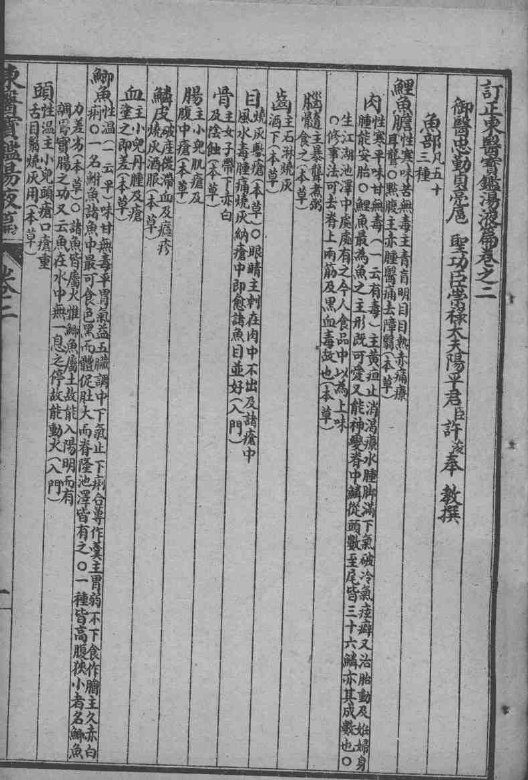 訂正東醫寶鑑湯液篇卷之二
御醫忠勤貞亮扈 聖功臣崇祿大夫陽平君臣許浚奉 教撰
魚部 凡五十三種
鯉魚膽 性寒味苦無毒主青盲明目目熱赤痛療
耳聾○點眼主赤腫翳痛去障翳(本草)
肉 性寒平味甘無毒(一云有毒)主黃疸止消渴療水腫脚滿下氣破冷氣痃癖又治胎動及姙婦身
腫能安胎○鯉魚最為魚之主形既可愛又能神變脊中鱗從頭數至尾皆三十六鱗亦其成數也○
生江湖池澤中處處有之今人食品中以為上味
○修事法可去脊上兩筋及黑血毒故也(本草)
腦髓 主暴聾煮粥
食之(本草)
齒 主石淋燒灰
酒下(本草)
目 燒灰療瘡(本草)○眼睛主刺在肉中不出及諸瘡中
風水毒腫痛燒灰納瘡中即愈諸魚目並好(入門)
骨 主女子帶下赤白
及陰蝕(本草)
腸 主小兒肌瘡及
腹中瘡(本草)
鱗皮 破産後滯血及癮疹
燒灰酒服(本草)
血 主小兒丹腫及瘡
塗之即差(本草)
鯽魚 性溫(一云平)味甘無毒平胃氣益五臟調中下氣止下痢合蓴作羹主胃弱不下食作膾主久赤白
痢○一名鮒魚諸魚中最可食色黑而體促肚大而脊隆池澤皆有之○一種背高腹狹小者名鯽魚
力差劣(本草)○諸魚皆屬火惟鯽魚屬土故能入陽明而有
調胃實腸之功又云魚在水中無一息之停故能動火(入門)
頭 性溫主小兒頭瘡口瘡重
舌目翳燒灰用(本草)
東醫寶鑑湯液篇 卷二
一